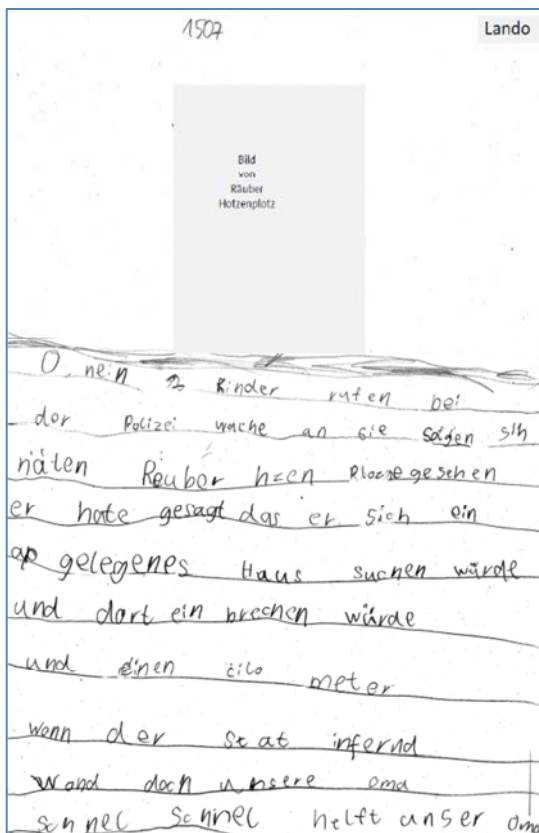 1507
Lando
Bild
von
Räuber
Hotzenplotz
O, nein 2 Kinder rufen bei
der Polizei wache an sie sagen sih
näten Reuber hzen Plozegesehen
er hate gesagt das er sich ein
ap gelegenes Haus suchen würde
und dort ein brechen würde
und einen cilo meter
wenn der Stat infernd
wond doch unsere oma
schnel schnel helft unser Oma